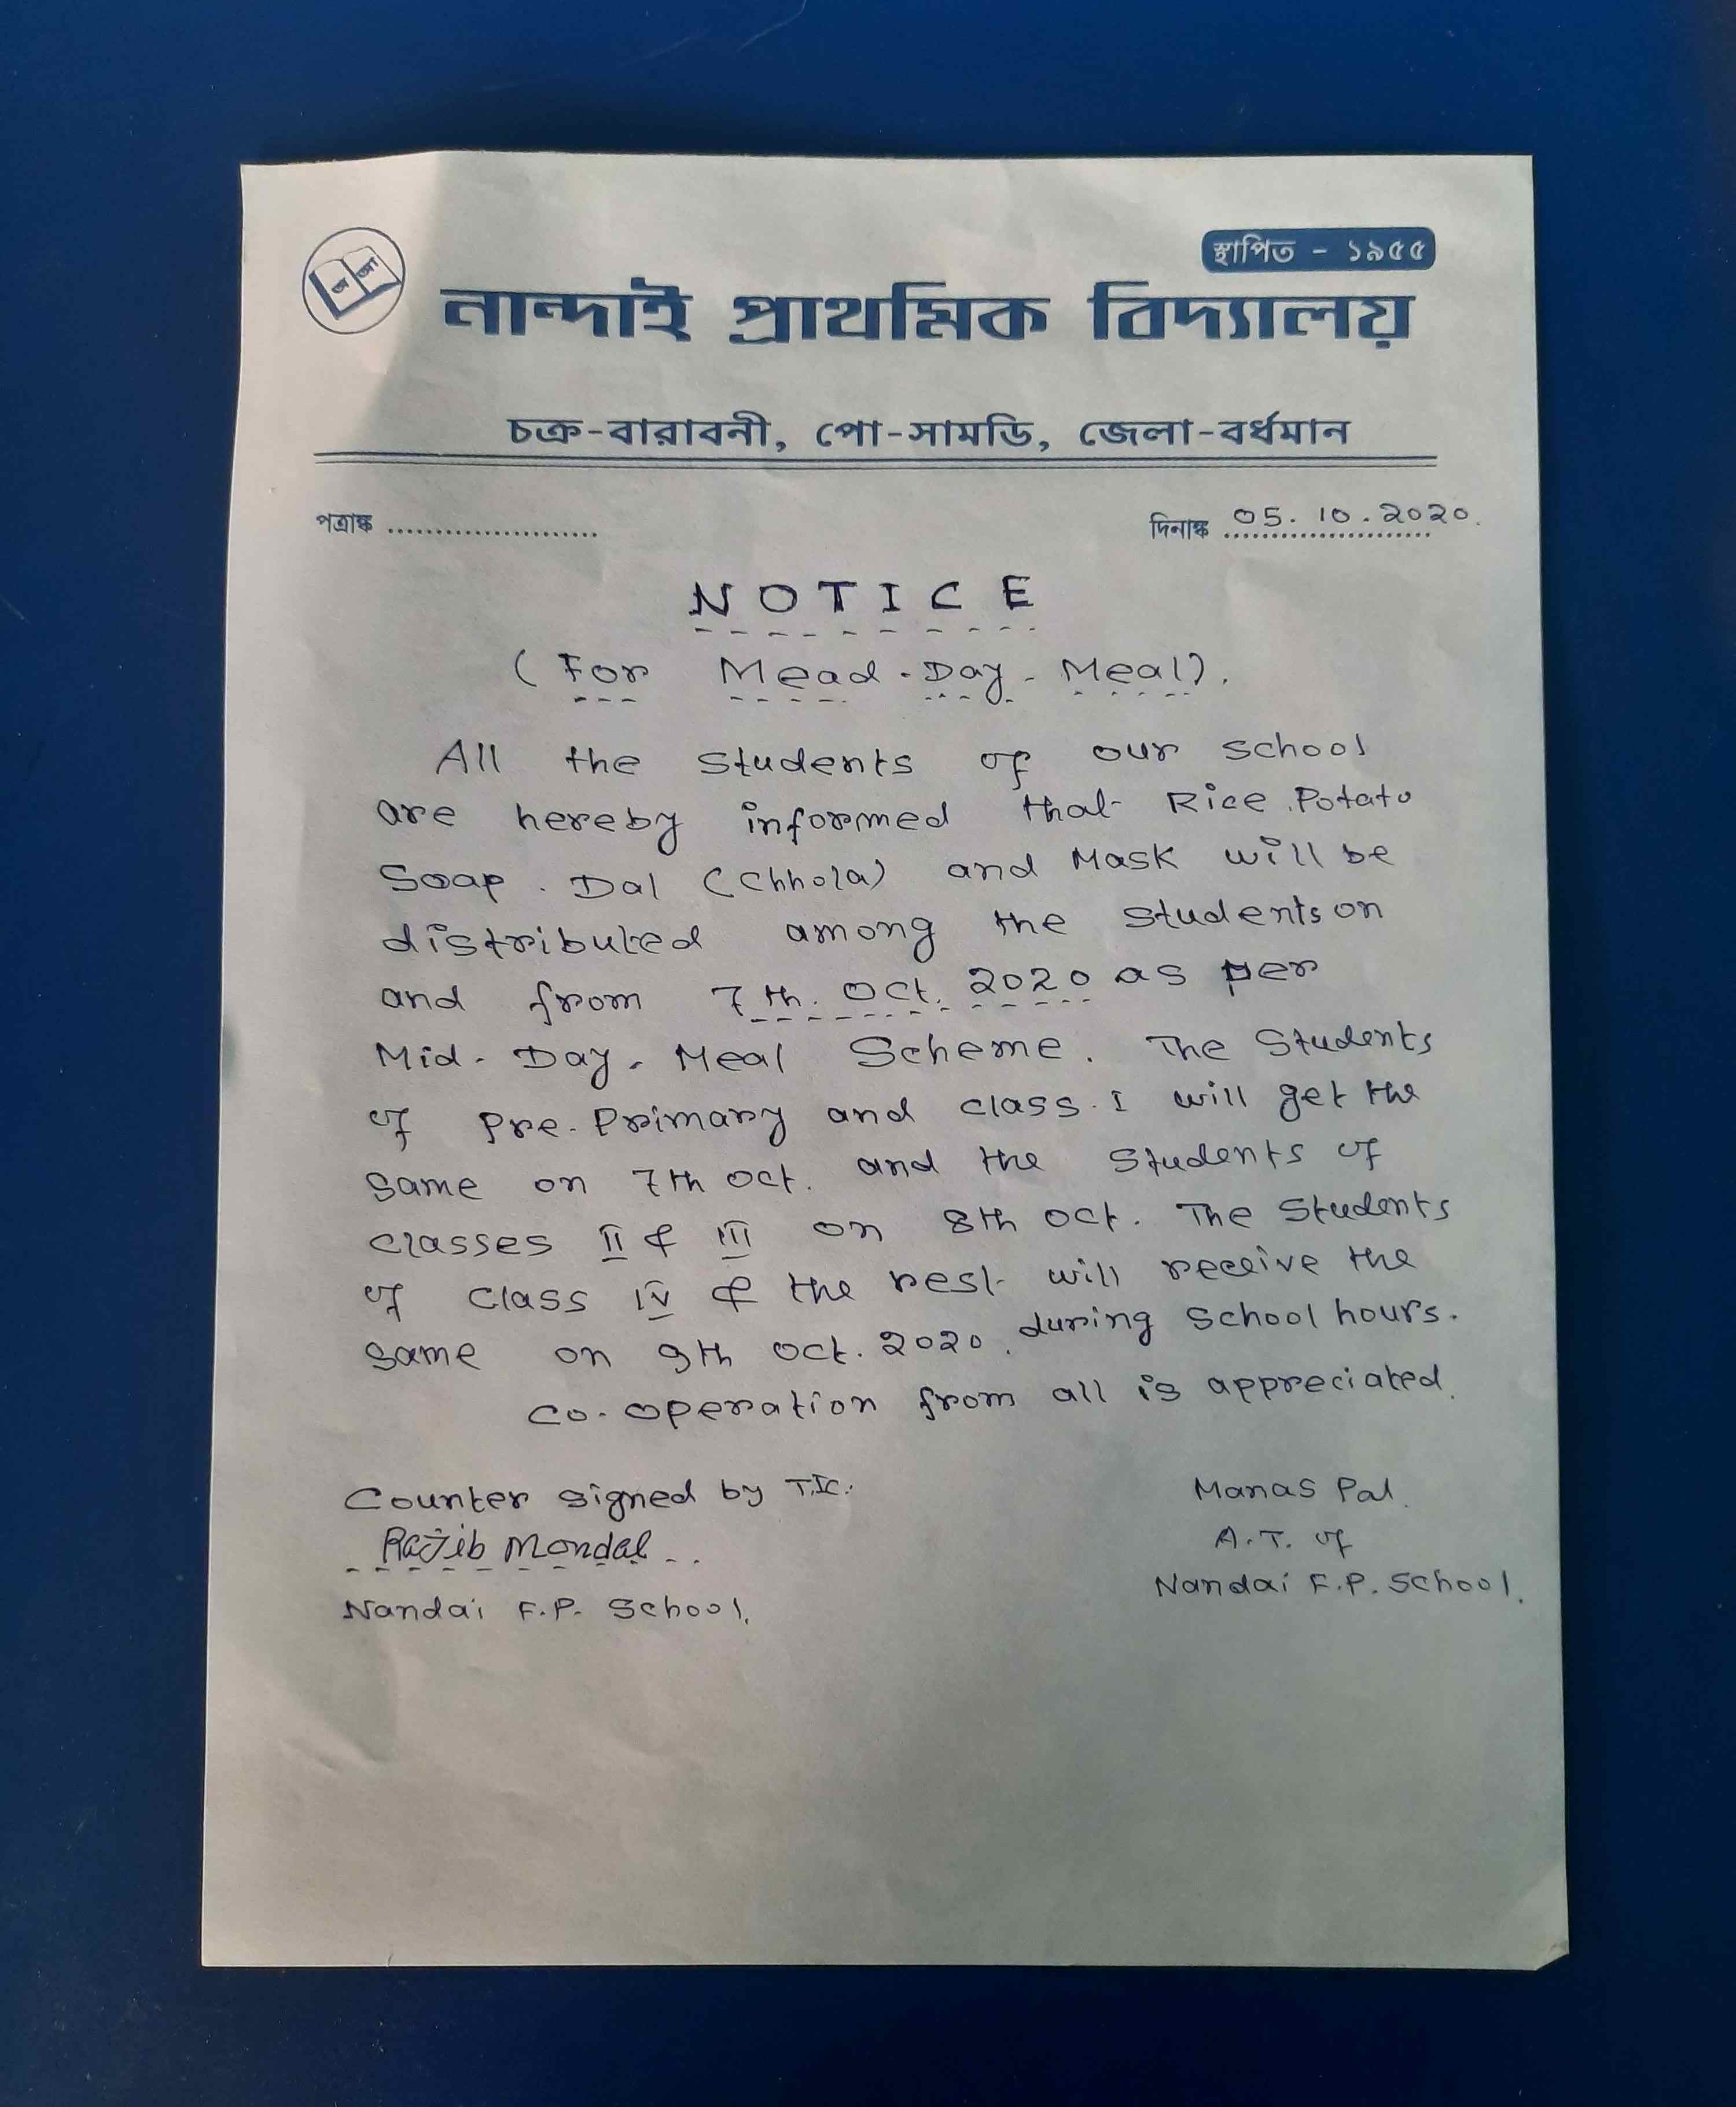 অ আ
স্থাপিত - ১৯৫৫
নান্দাই প্রাথমিক বিদ্যালয়
চক্র-বারাবনী, পো-সামডি, জেলা-বর্ধমান
পত্রাঙ্ক ......................
দিনাঙ্ক 05.10.2020.
NOTICE
(For Mead-Day-Meal).
All the students of our school
are hereby informed that Rice, Potato
Soap. Dal (Chhola) and Mask will be
distributed among the students on
and from 7th. Oct. 2020 as per
Mid-Day-Meal Scheme. The Students
of Pre-Primary and class-I will get the
same on 7th Oct. and the students of
classes II & III on 8th Oct. The Students
of class IV & the rest will receive the
same on 9th Oct. 2020. during School hours.
Co-operation from all is appreciated.
Counter signed by T.I.C.
Rajib Mondal
Nandai F.P. School.
Manas Pal.
A.T. of
Nandai F.P. School.